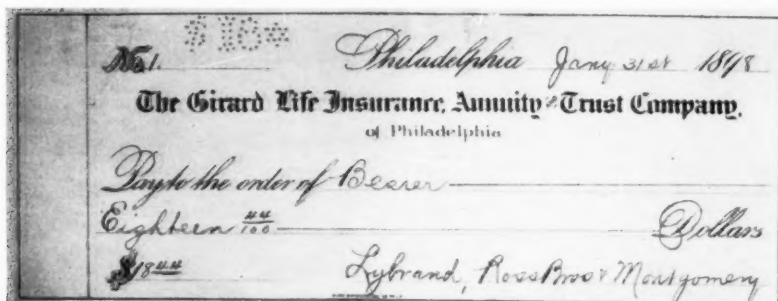 $18*
No. 1. Philadelphia Jany 31st 1898
The Girard Life Insurance, Annuity and Trust Company,
of Philadelphia
Pay to the order of Bearer
Eighteen 44/100 Dollars
$18 44 Lybrand, Ross Bros & Montgomery